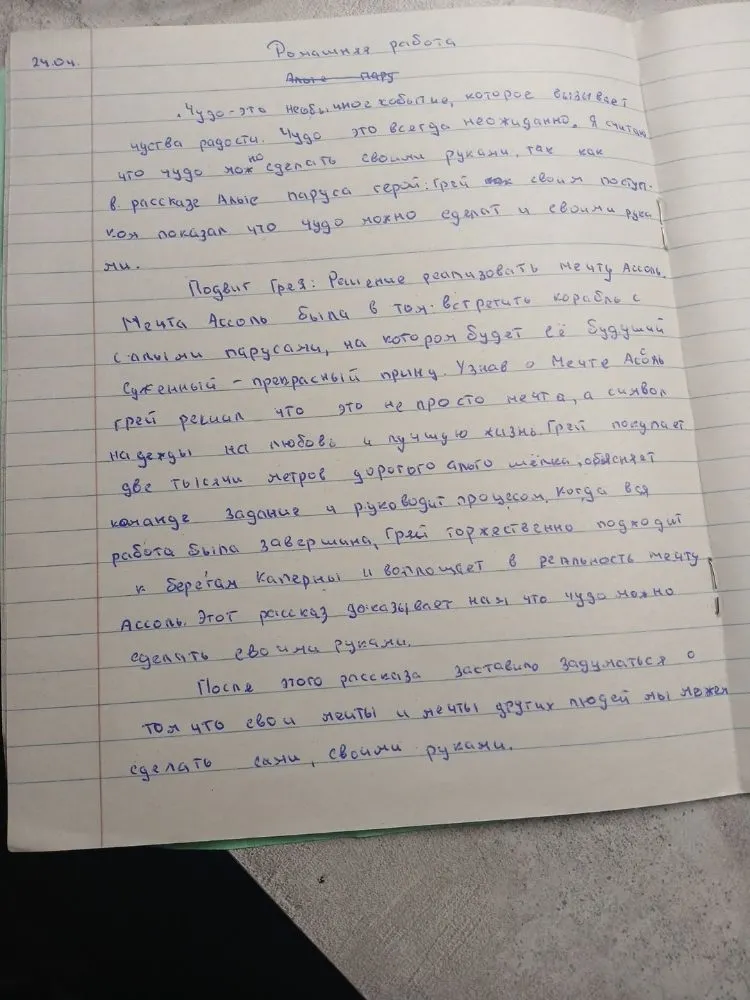 24.04.
Домашняя работа
Алые пару
Чудо - это необычное событие, которое вызывает
чуства радости. Чудо это всегда неожиданно. Я считаю
что чудо можно сделать своими руками, так как
в рассказе Алые паруса герой: Грей своим поступ-
ком показал что чудо можно сделат и своими рука
ми.
Подвиг Грея: Решение реализовать мечту Ассоль.
Мечта Ассоль была в том: встретить корабль с
с алыми парусами, на котором будет её будущий
суженный - прекрасный принц. Узнав о мечте Ассоль
Грей решил что это не просто мечта, а символ
надежды на любовь и лучшую жизнь. Грей покупает
две тысячи метров дорогого алого шёлка, объясняет
команде задание и руководит процесом, когда вся
работа была завершина, Грей торжественно подходит
к берегам Каперны и воплощает в реальность мечту
Ассоль. Этот рассказ доказывает нам что чудо можно
сделать своими руками.
После этого рассказа заставило задуматься о
том что свои мечты и мечты других людей мы можем
сделать сами, своими руками.